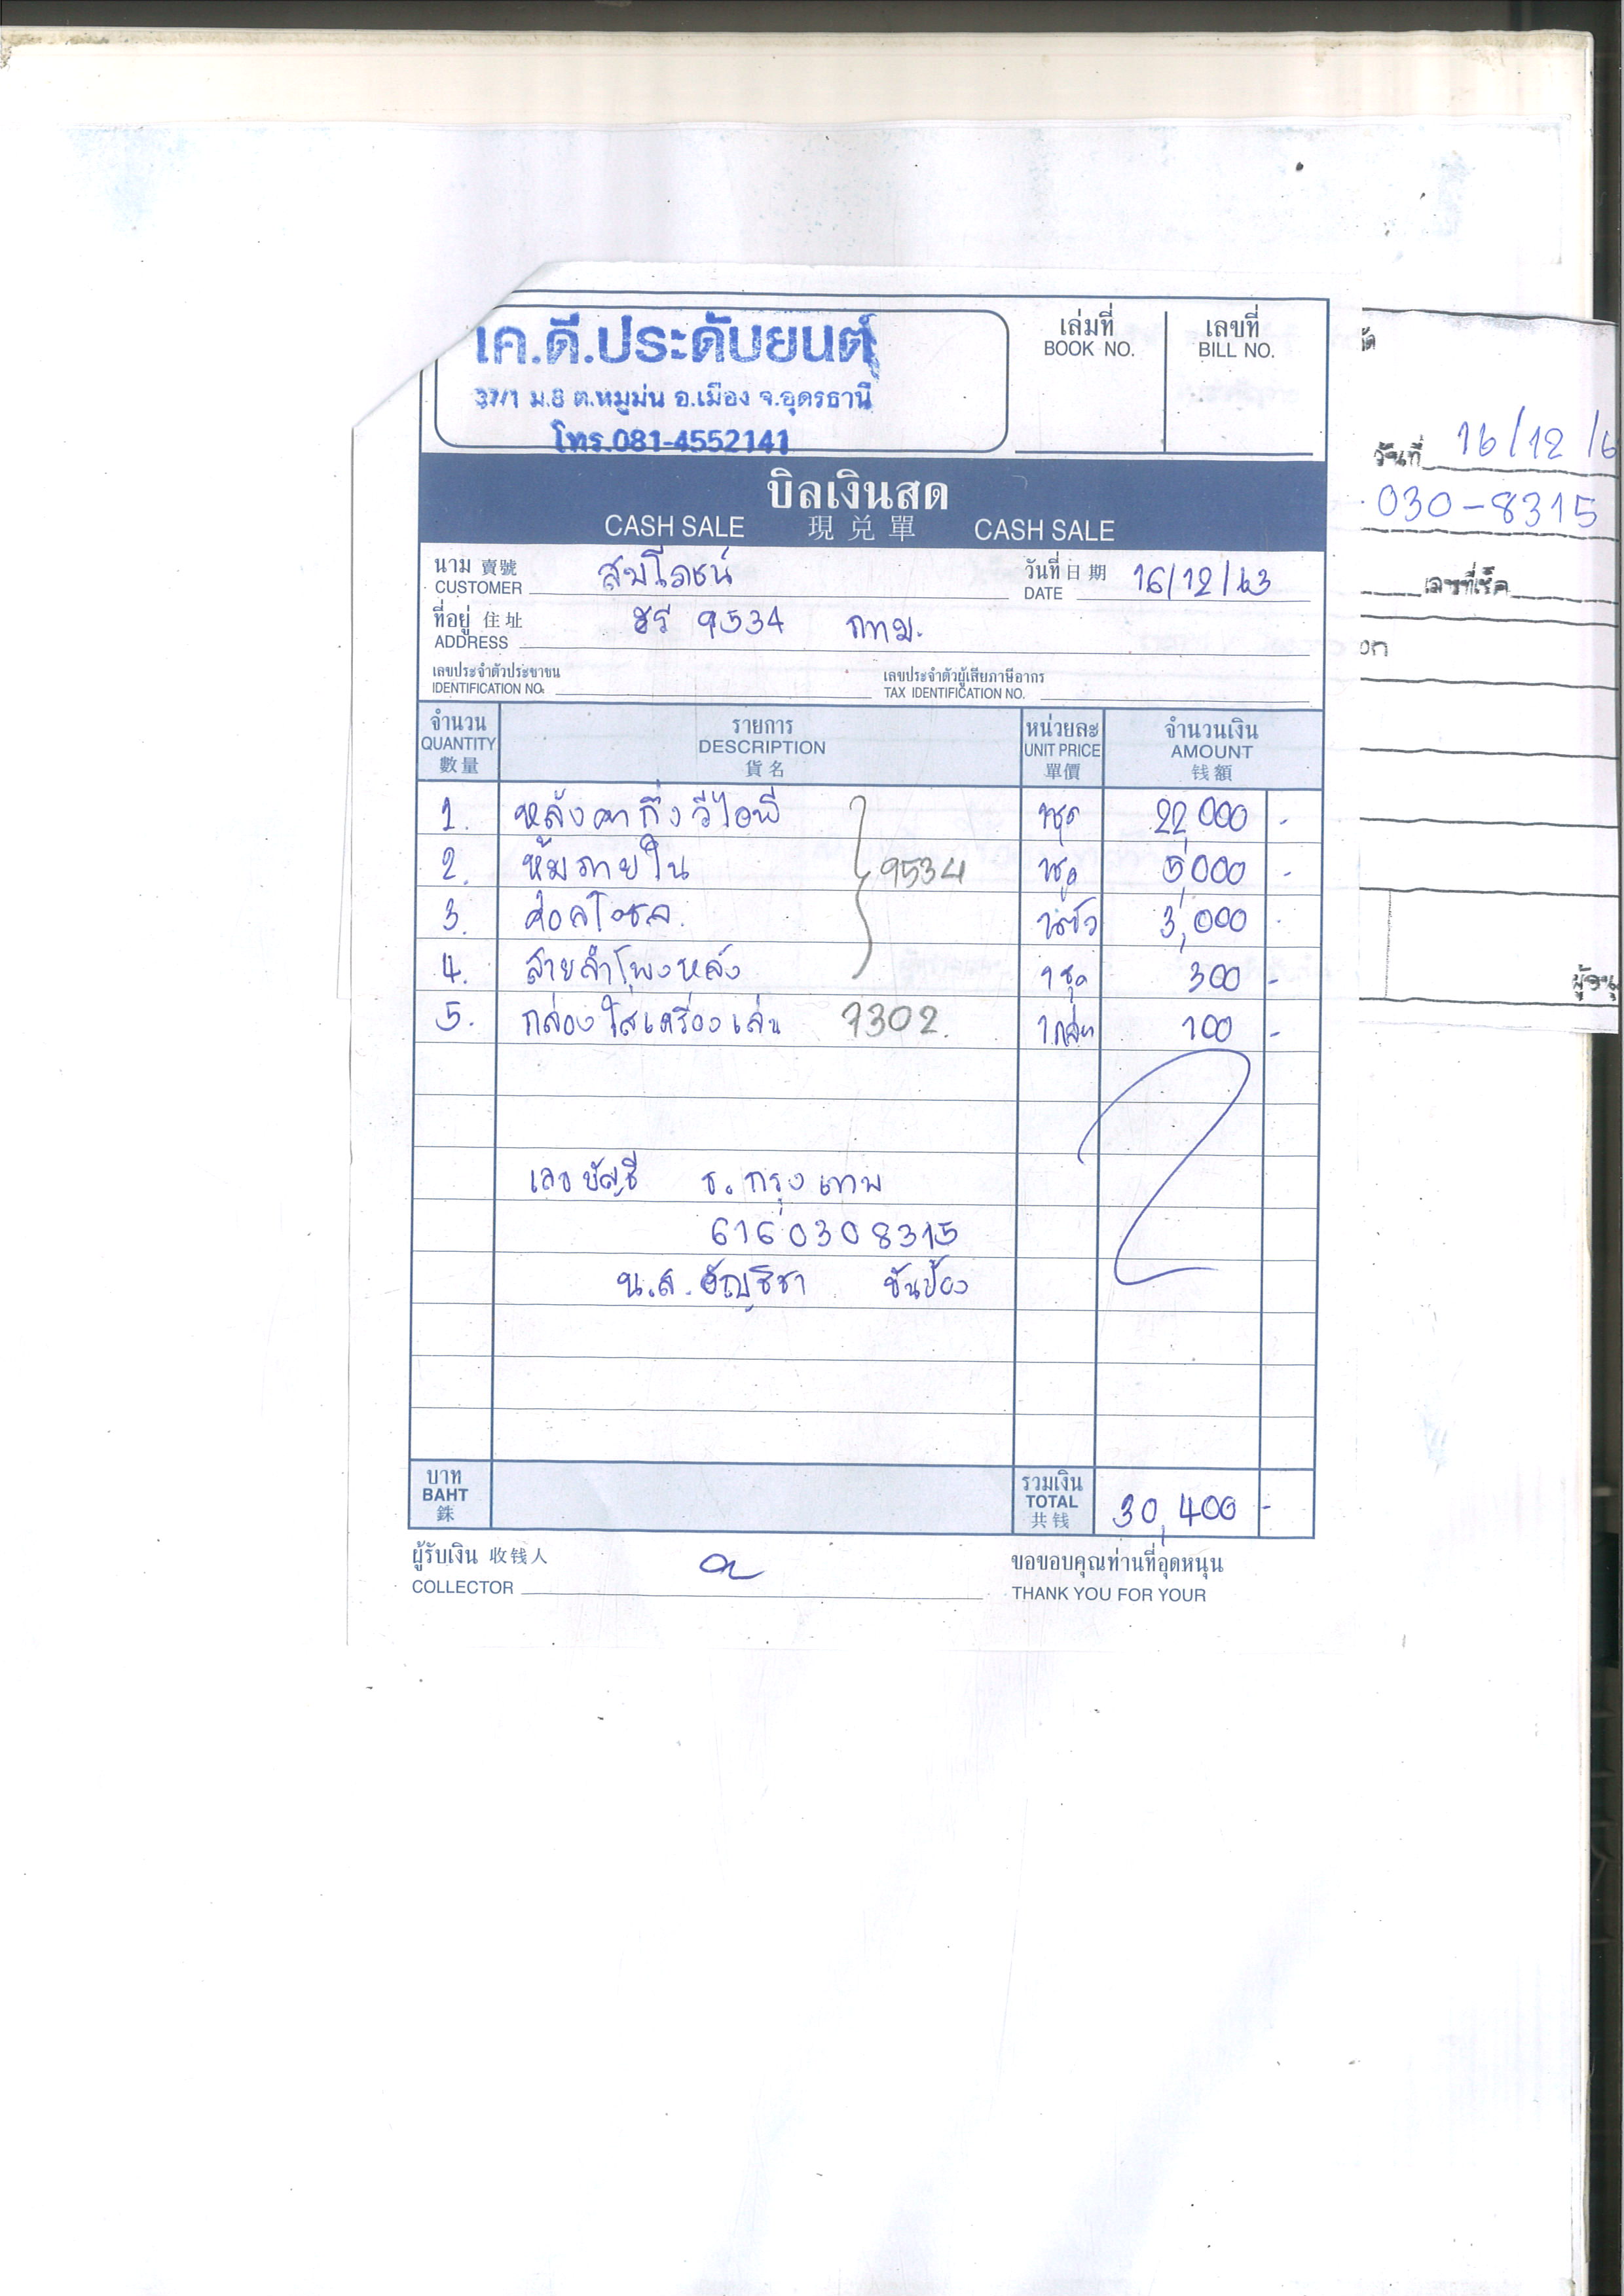 เค.ดี.ประดับยนต์
37/1 ม.8 ต.หมูม่น อ.เมือง จ.อุดรธานี
โทร.081-4552141
เล่มที่
BOOK NO.
เลขที่
BILL NO.
บิลเงินสด
CASH SALE 現兑單 CASH SALE
นาม 賣號
CUSTOMER
สมโภชน์
วันที่ 日期
DATE
16/12/63
ที่อยู่ 住址
ADDRESS
ฮร 9534 กทม.
เลขประจำตัวประชาชน
IDENTIFICATION NO.
เลขประจำตัวผู้เสียภาษีอากร
TAX IDENTIFICATION NO.
จำนวน รายการ หน่วยละ จำนวนเงิน
QUANTITY DESCRIPTION UNIT PRICE AMOUNT
數量 貨名 單價 钱額
1. หลังคากึ่งวีไอพี 1ชุด 22,000 -
2. หุ้มภายใน 9534 1ชุด 5,000 -
3. 3,000 -
4. สายลำโพงหลัง 1ชุด 300 -
5. กล่องใส่เครื่องเล่น 7302. 1กล่อง 100 -
เลขบัญชี ธ.กรุงเทพ
6160308315
น.ส. ธัญชิชา ขันป้อง
บาท
BAHT
銖
รวมเงิน
TOTAL
共钱
30,400 -
ผู้รับเงิน 收钱人
COLLECTOR
ขอขอบคุณท่านที่อุดหนุน
THANK YOU FOR YOUR
วันที่ 16/12/6
030-8315
เลขที่เช็ค